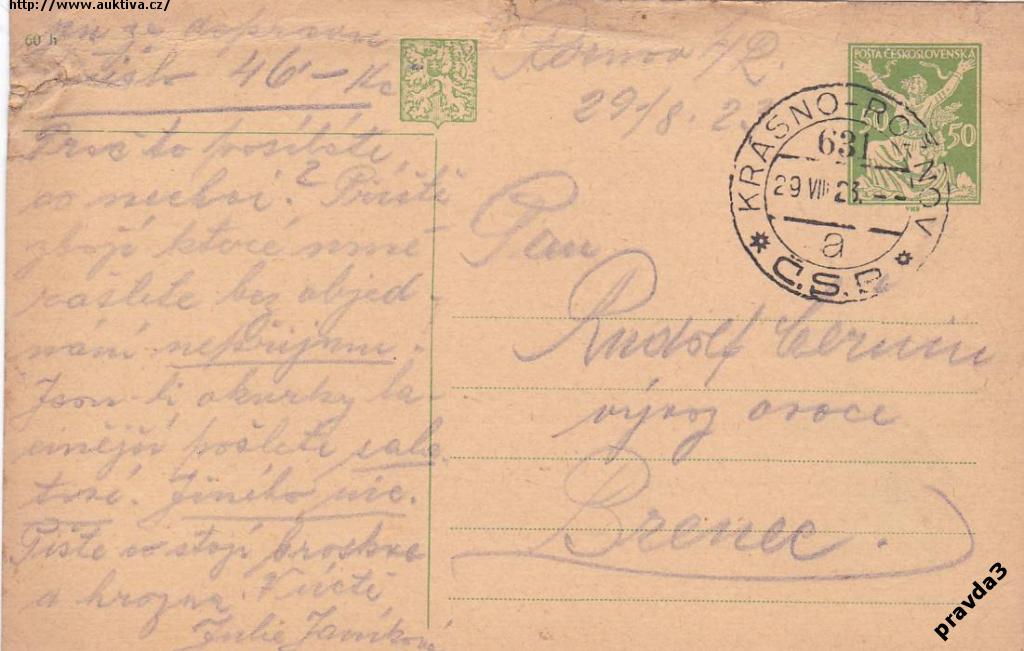 http://www.auktiva.cz/
60 h
se dopravu
46 – Kc
29/8. 23
POŠTA ČESKOSLOVENSKÁ
50 50
KRÁSNO-ROŽNOV
631
29 VIII 23. - -
a
* Č.S.P. *
Proč to posíláte,
co nechci? Příště
zboží které mně
zašlete bez objed-
nání nepřijmu.
Jsou-li okurky la-
cinější pošlete salá-
tové. Jiného nic.
Pište co stojí broskve
a hrozna. V úctě
Julie Janíková
Pan
Rudolf
vývoz ovoce
Brenec.
pravda3